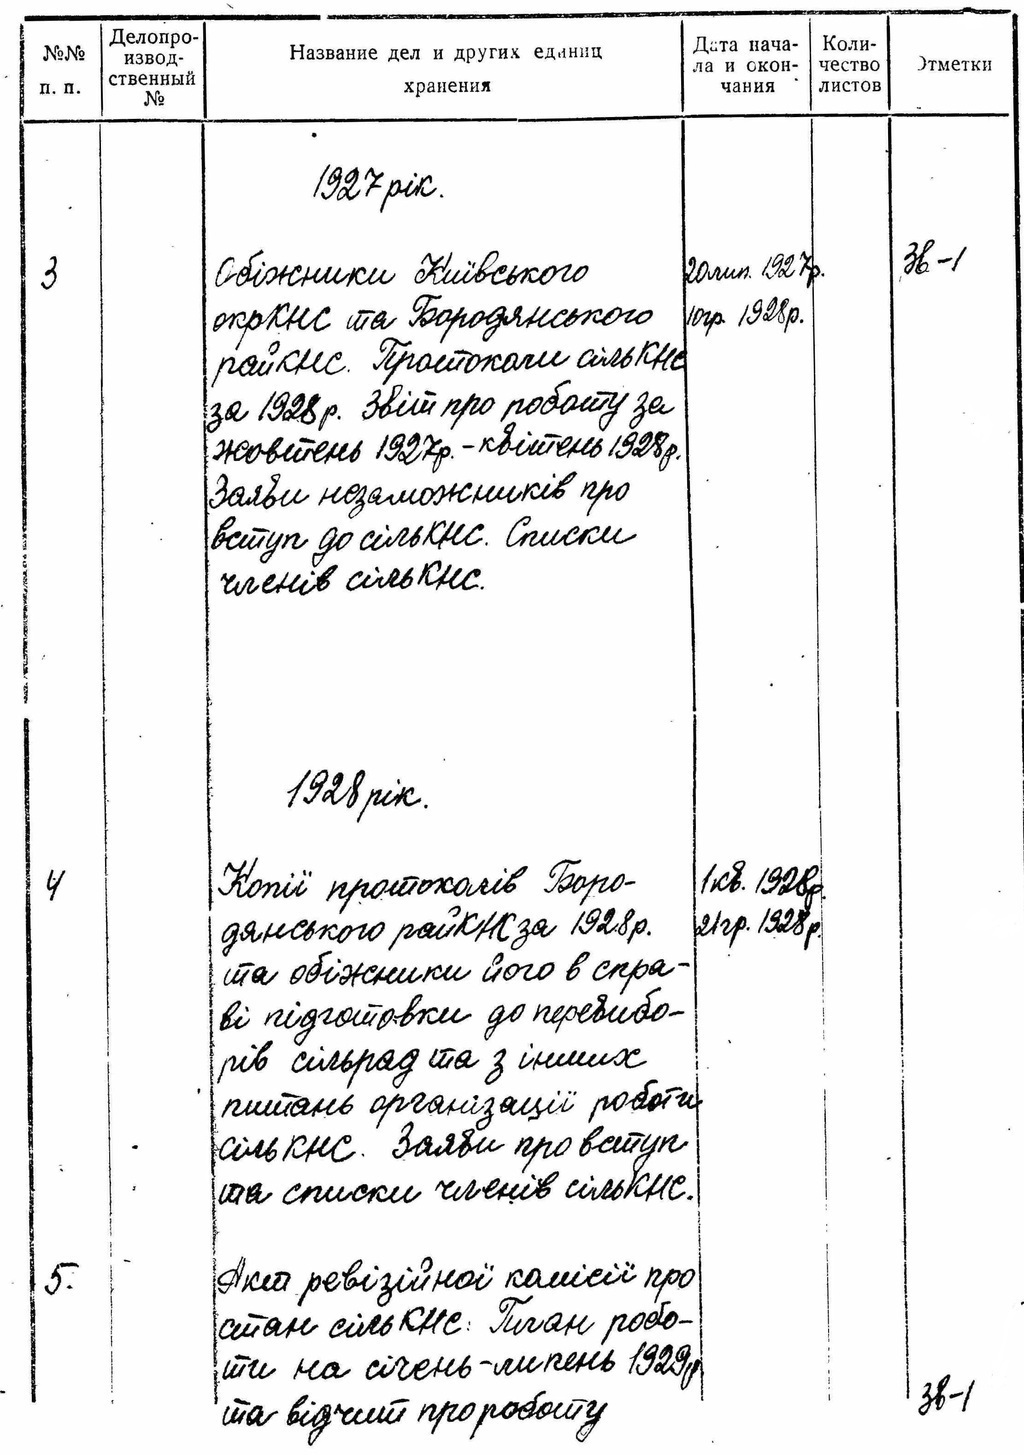 №№ п. п.
Делопро-
извод-
ственный
№
Название дел и других единиц
хранения
Дата нача-
ла и окон-
чания
Коли-
чество
листов
Отметки
1927 рік.
3
Обіжники Київського
окрКНС та Бородянського
райКНС. Протоколи сільКНС
за 1928 р. Звіт про роботу за
жовтень 1927р. - квітень 1928р.
Заяви незаможників про
вступ до сільКНС. Списки
членів сільКНС.
20 лип. 1927р.
10 гр. 1928р.
Зв-1
1928 рік.
4
Копії протоколів Боро-
дянського райКНС за 1928р.
та обіжники його в спра-
ві підготовки до перевибо-
рів сільрад та з інших
питань організації роботи
сільКНС. Заяви про вступ
та списки членів сільКНС.
1 кв. 1928р.
21 гр. 1928р.
5.
Акт ревізійної комісії про
стан сільКНС. План робо-
ти на січень-липень 1929р.
та відчит про роботу
Зв-1